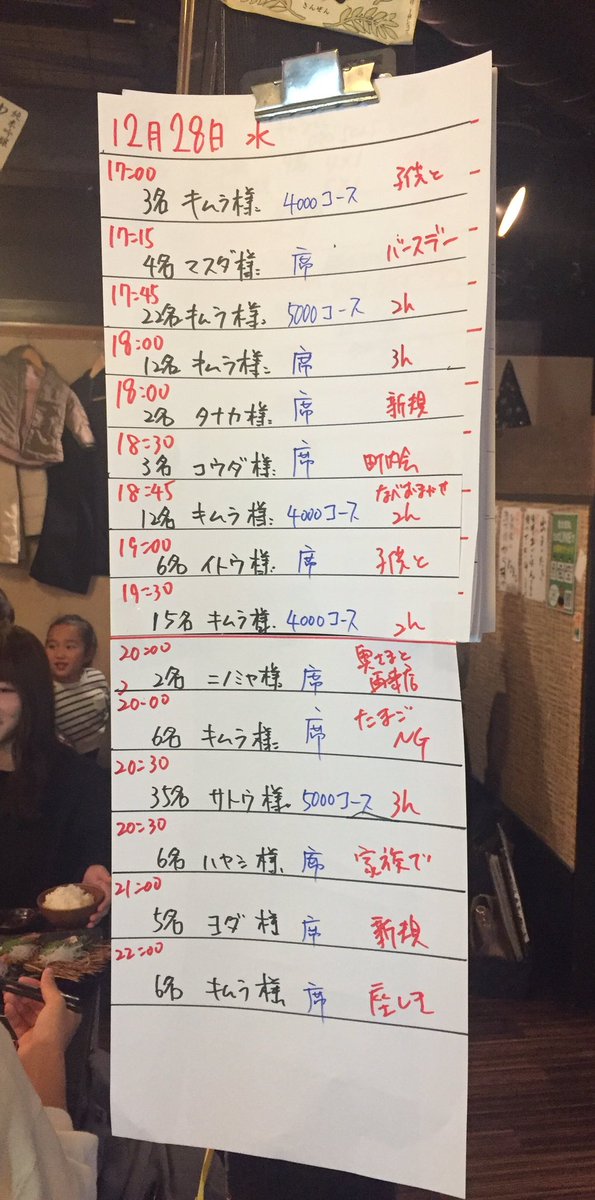 12月28日 水
17:00 子供と
3名 キムラ様 4000コース
17:15 バースデー
4名 マスダ様 席
17:45
22名 キムラ様 5000コース 2h
18:00
12名 キムラ様 席 3h
18:00
2名 タナカ様 席 新規
18:30
3名 コウダ様 席 町内会
18:45 なべおまかせ
12名 キムラ様 4000コース 2h
19:00
6名 イトウ様 席 子供と
19:30
15名 キムラ様 4000コース 2h
20:00 奥さまと
2名 ニノミヤ様 席
20:00 たまご
6名 キムラ様 席 NG
20:30
35名 サトウ様 5000コース 3h
20:30
6名 ハヤシ様 席 家族で
21:00
5名 ヨダ様 席 新規
22:00
6名 キムラ様 席 座しき